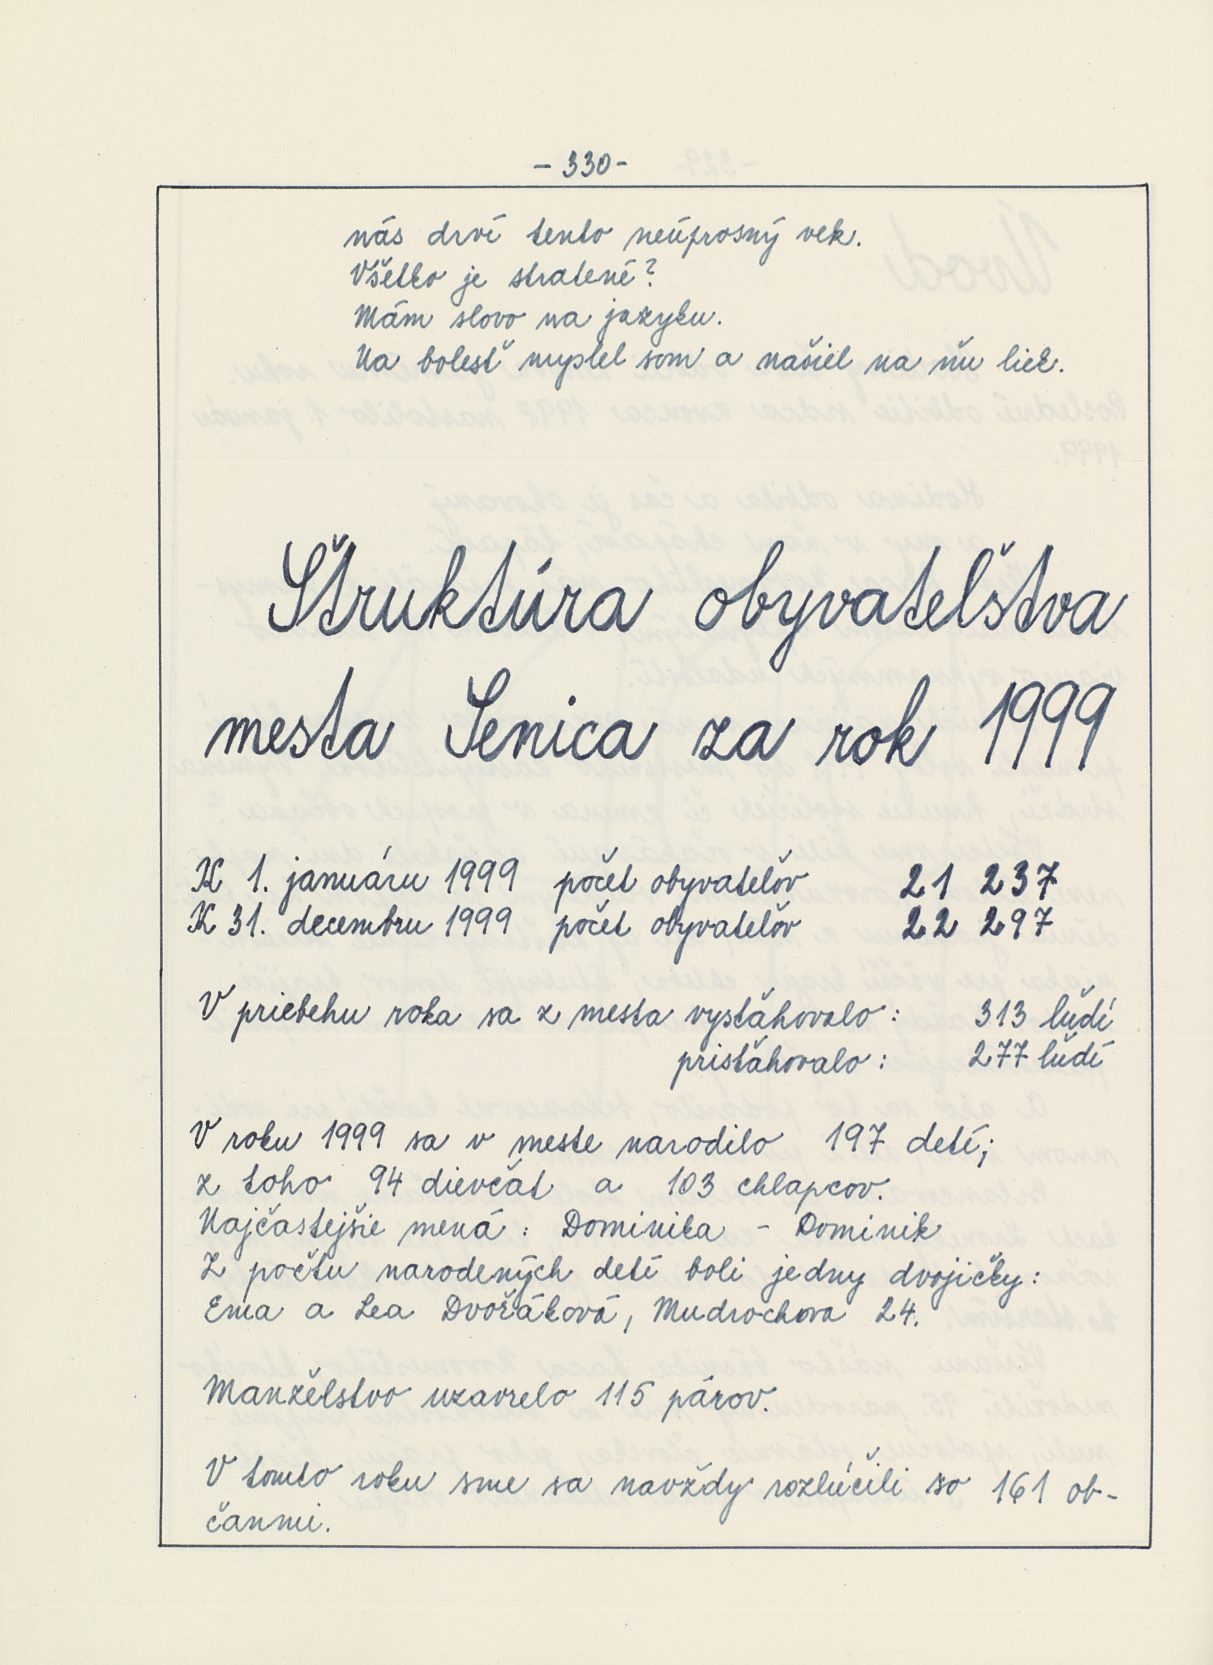 - 330 -
nás drví tento neúprosný vek.
Všetko je stratené?
Mám slovo na jazyku.
Na bolesť myslel som a našiel na ňu liek.
Štruktúra obyvateľstva
mesta Senica za rok 1999
K 1. januáru 1999 počet obyvateľov 21 237
K 31. decembru 1999 počet obyvateľov 22 297
V priebehu roka sa z mesta vysťahovalo: 313 ľudí
prisťahovalo: 277 ľudí
V roku 1999 sa v meste narodilo 197 detí;
z toho 94 dievčat a 103 chlapcov.
Najčastejšie mená: Dominika - Dominik
Z počtu narodených detí boli jedny dvojičky:
Ema a Lea Dvořáková, Mudrochova 24.
Manželstvo uzavrelo 115 párov.
V tomto roku sme sa navždy rozlúčili so 161 ob-
čanmi.